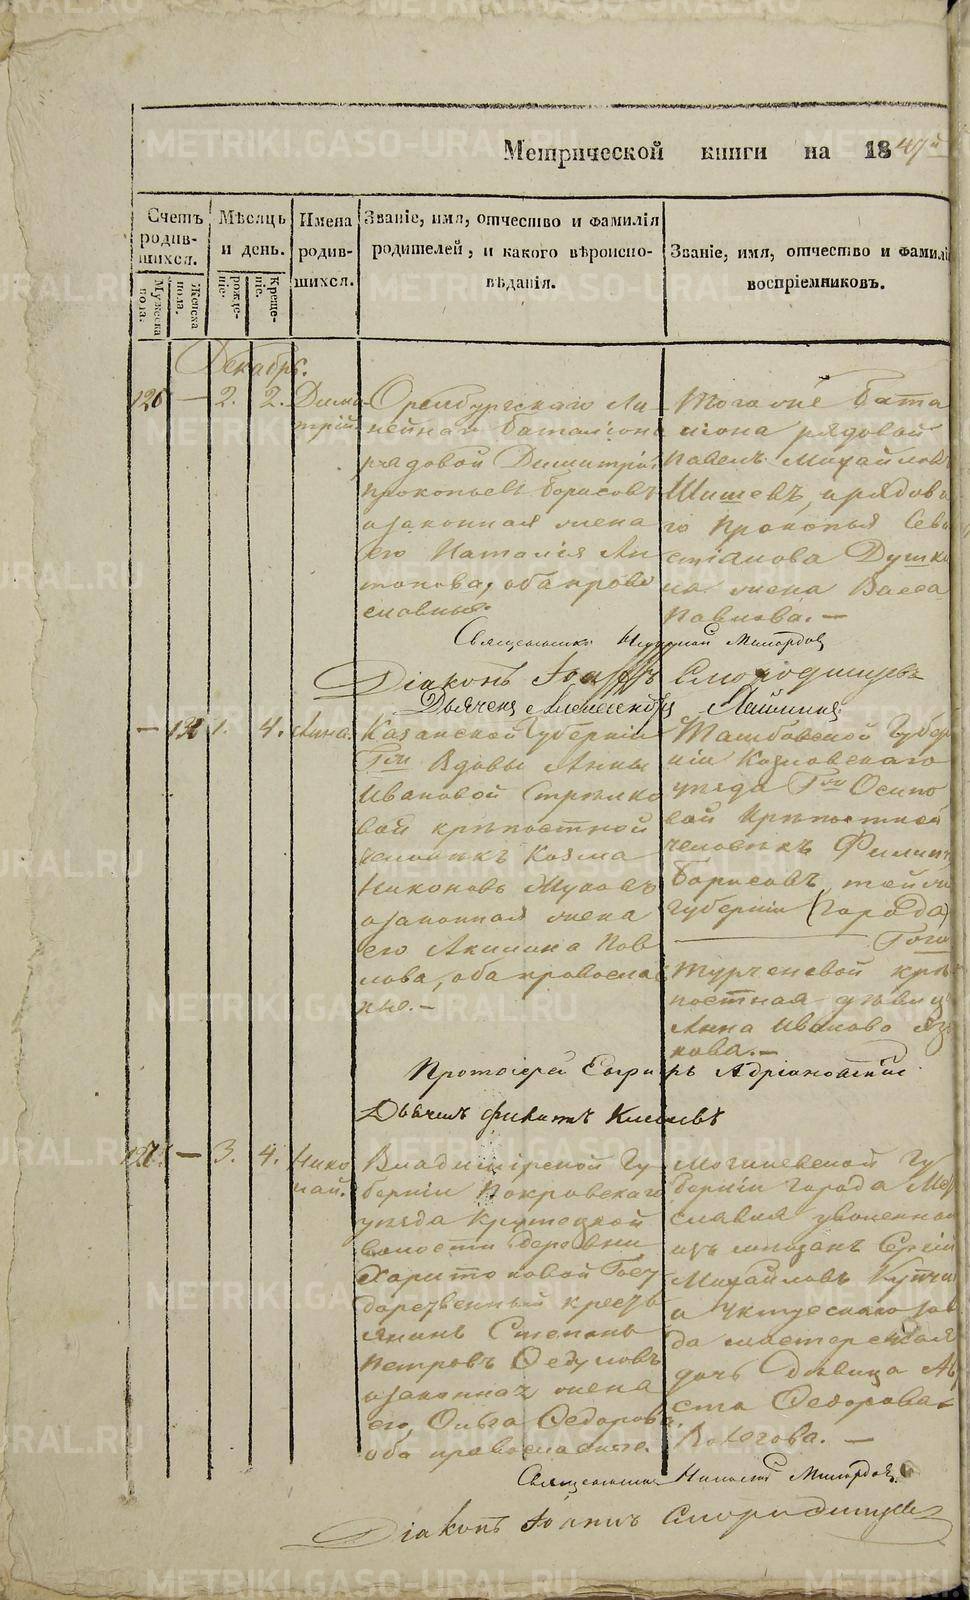 Метрической книги на 1847й
Счетъ родив-шихся.
Мужеска пола.
Женска пола.
Мѣсяцъ и день.
рожде-нія.
Креще-нія.
Имена родив-шихся.
Званіе, имя, отчество и фамилія
родителей, и какого вѣроиспо-
вѣданія.
Званіе, имя, отчество и фамилі
воспріемниковъ.
Декабрь.
126 — 2. 2. Дими-
трій.
Оренбургскаго Ли-
нейнаго баталіона
рядовой Димитрій
Прокопьевъ Борисовъ
и законная жена
его Наталія Ан-
тонова, оба право
славные.
Того же бата
ліона рядовой
Павелъ Михайловъ
Шишевъ, и рядова
го Прокопья Сева
стіанова Душки
на жена Васса
Павлова. —
Священникъ Миловдовъ
Діаконъ Іоаннъ Смородинцевъ
Дьячекъ Александръ
— 1. 4. Анна.
Казанской Губерніи
Гжи Вдовы Анны
Ивановой Стрѣлко
вой крѣпостной
человѣкъ Козма
Никоновъ Жуковъ
и законная жена
его Акилина Пав
лова, оба правосла
ные. —
Тамбовской Губер
ніи Козловскаго
уѣзда Гжи Осипо
вой крѣпостной
человѣкъ Филип
Борисовъ, той же
губерніи (города)
Гжи
Тургеневой крѣ
постная дѣвица
Анна Иванова Язы
кова. —
Протоіерей Адріановскій
Дьячекъ
127. — 3. 4. Нико
лай.
Владимірской Гу
берніи Покровскаго
уѣзда Крутецкой
волости деревни
Харитоновой Госу
дарственный кресть
янинъ Степанъ
Петровъ Ѳедуловъ
и законная жена
его, Ольга Ѳедорова
оба православные.
Могилевской Гу
берніи города Мст
славля уволенной
изъ мѣщанъ Сергій
Михайловъ Купчи
и Уктусскаго заво
да мастерская
дочь дѣвица Ав
ста Ѳедорова
Священникъ Николай Миловдовъ
Діаконъ Іоаннъ Смородинцевъ
METRIKI.GASO-URAL.RU